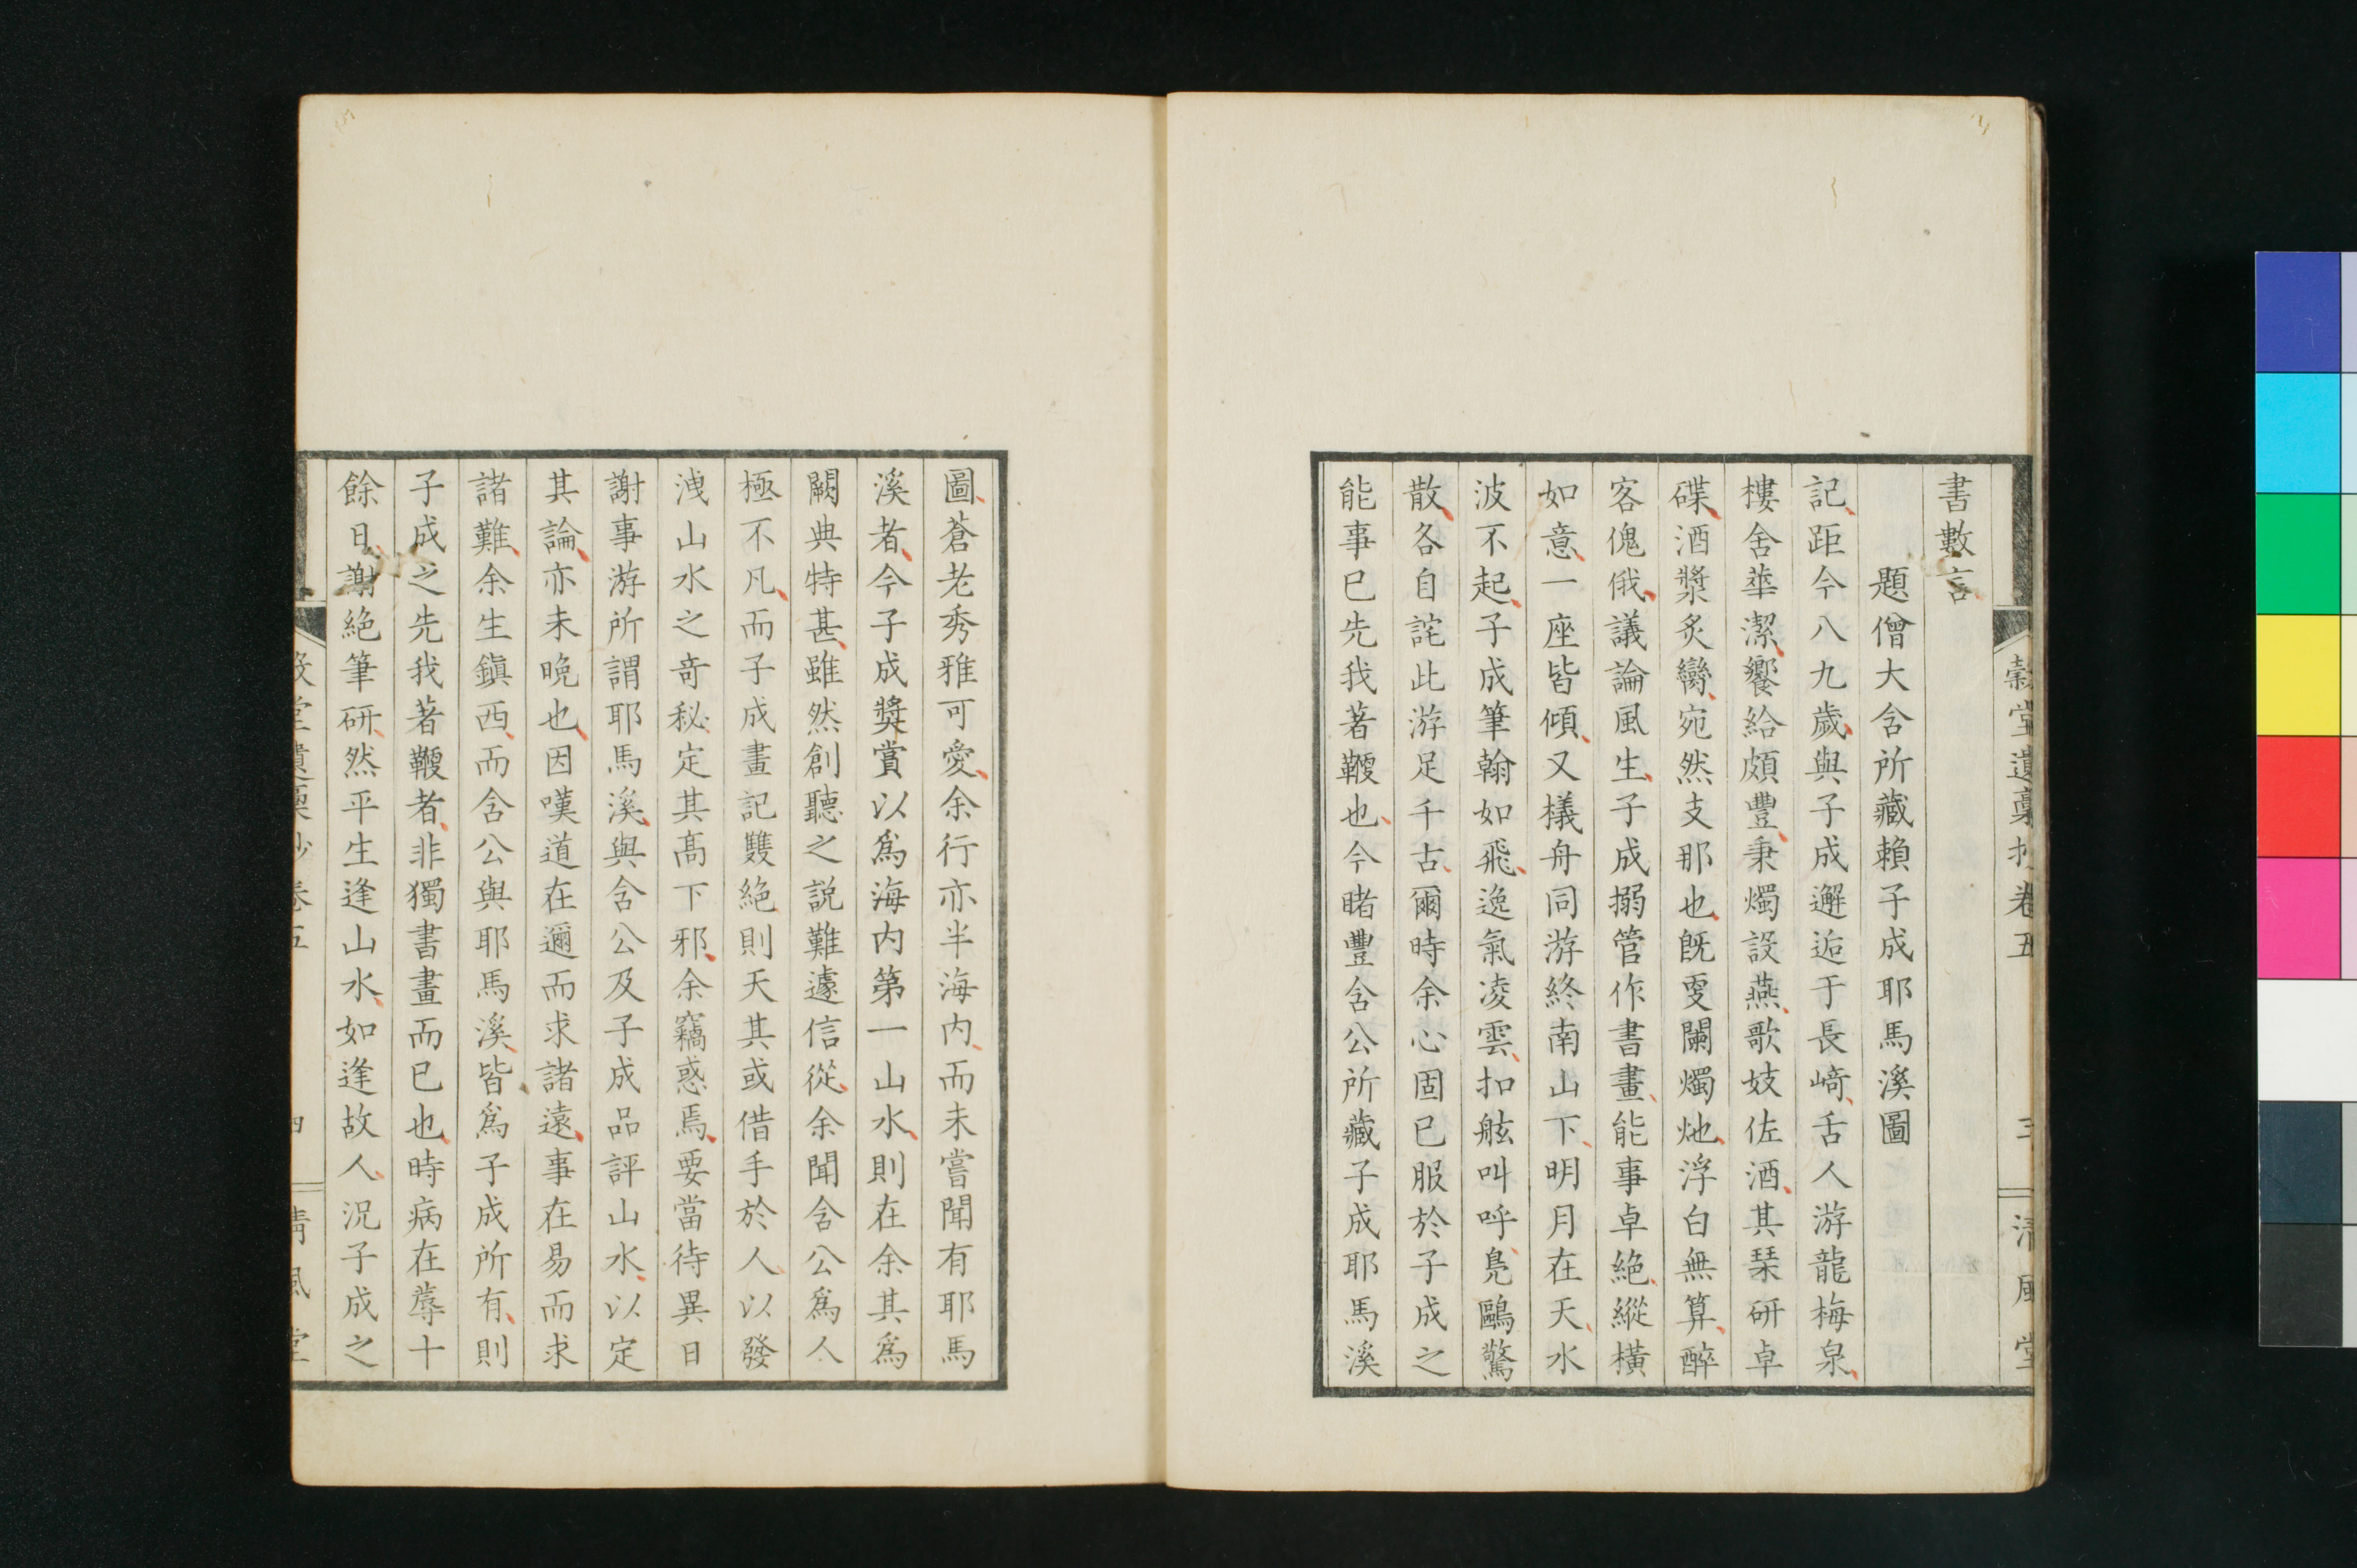 穀堂遺稾抄卷五
清風堂
書數言
題僧大含所藏賴子成耶馬溪圖
記距今八九歲與子成邂逅于長﨑舌人游龍梅泉
樓舍華潔饗給頗豐秉燭設燕歌妓佐酒其琹研卓
碟酒漿炙臠宛然支那也既雯闌燭灺浮白無算醉
客傀俄議論風生子成搦管作書畫能事卓絕縱橫
如意一座皆傾又檥舟同游終南山下明月在天水
波不起子成筆翰如飛逸氣凌雲扣舷叫呼鳧鷗驚
散各自詫此游足千古爾時余心固已服於子成之
能事已先我著鞭也今睹豐含公所藏子成耶馬溪
圖蒼老秀雅可愛余行亦半海內而未嘗聞有耶馬
溪者今子成獎賞以爲海内第一山水則在余其爲
闕典特甚雖然創聽之説難遽信從余聞含公爲人
極不凡而子成畫記雙絕則天其或借手於人以發
洩山水之奇秘定其髙下邪余竊惑焉要當待異日
謝事游所謂耶馬溪與含公及子成品評山水以定
其論亦未晚也因嘆道在邇而求諸遠事在易而求
諸難余生鎭西而含公與耶馬溪皆爲子成所有則
子成之先我著鞭者非獨書畫而已也時病在蓐十
餘日謝絕筆研然平生逢山水如逢故人況子成之
卷五
四
清風堂